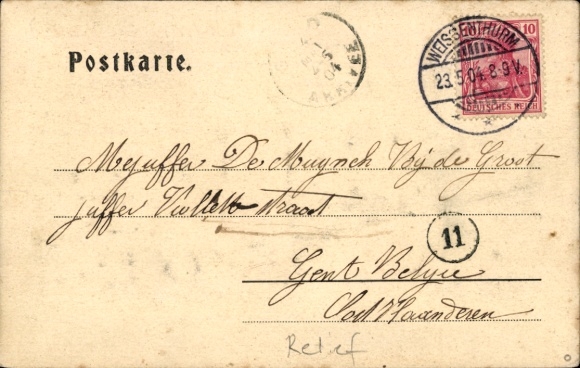 Postkarte.
WEISSENTHURM
23.5.04. 8-9 V.
10
DEUTSCHES REICH
Mejuffer De Muynck Bij de Groot
juffer Violette straat
11
Gent Belgie
Oost Vlaanderen
Relief